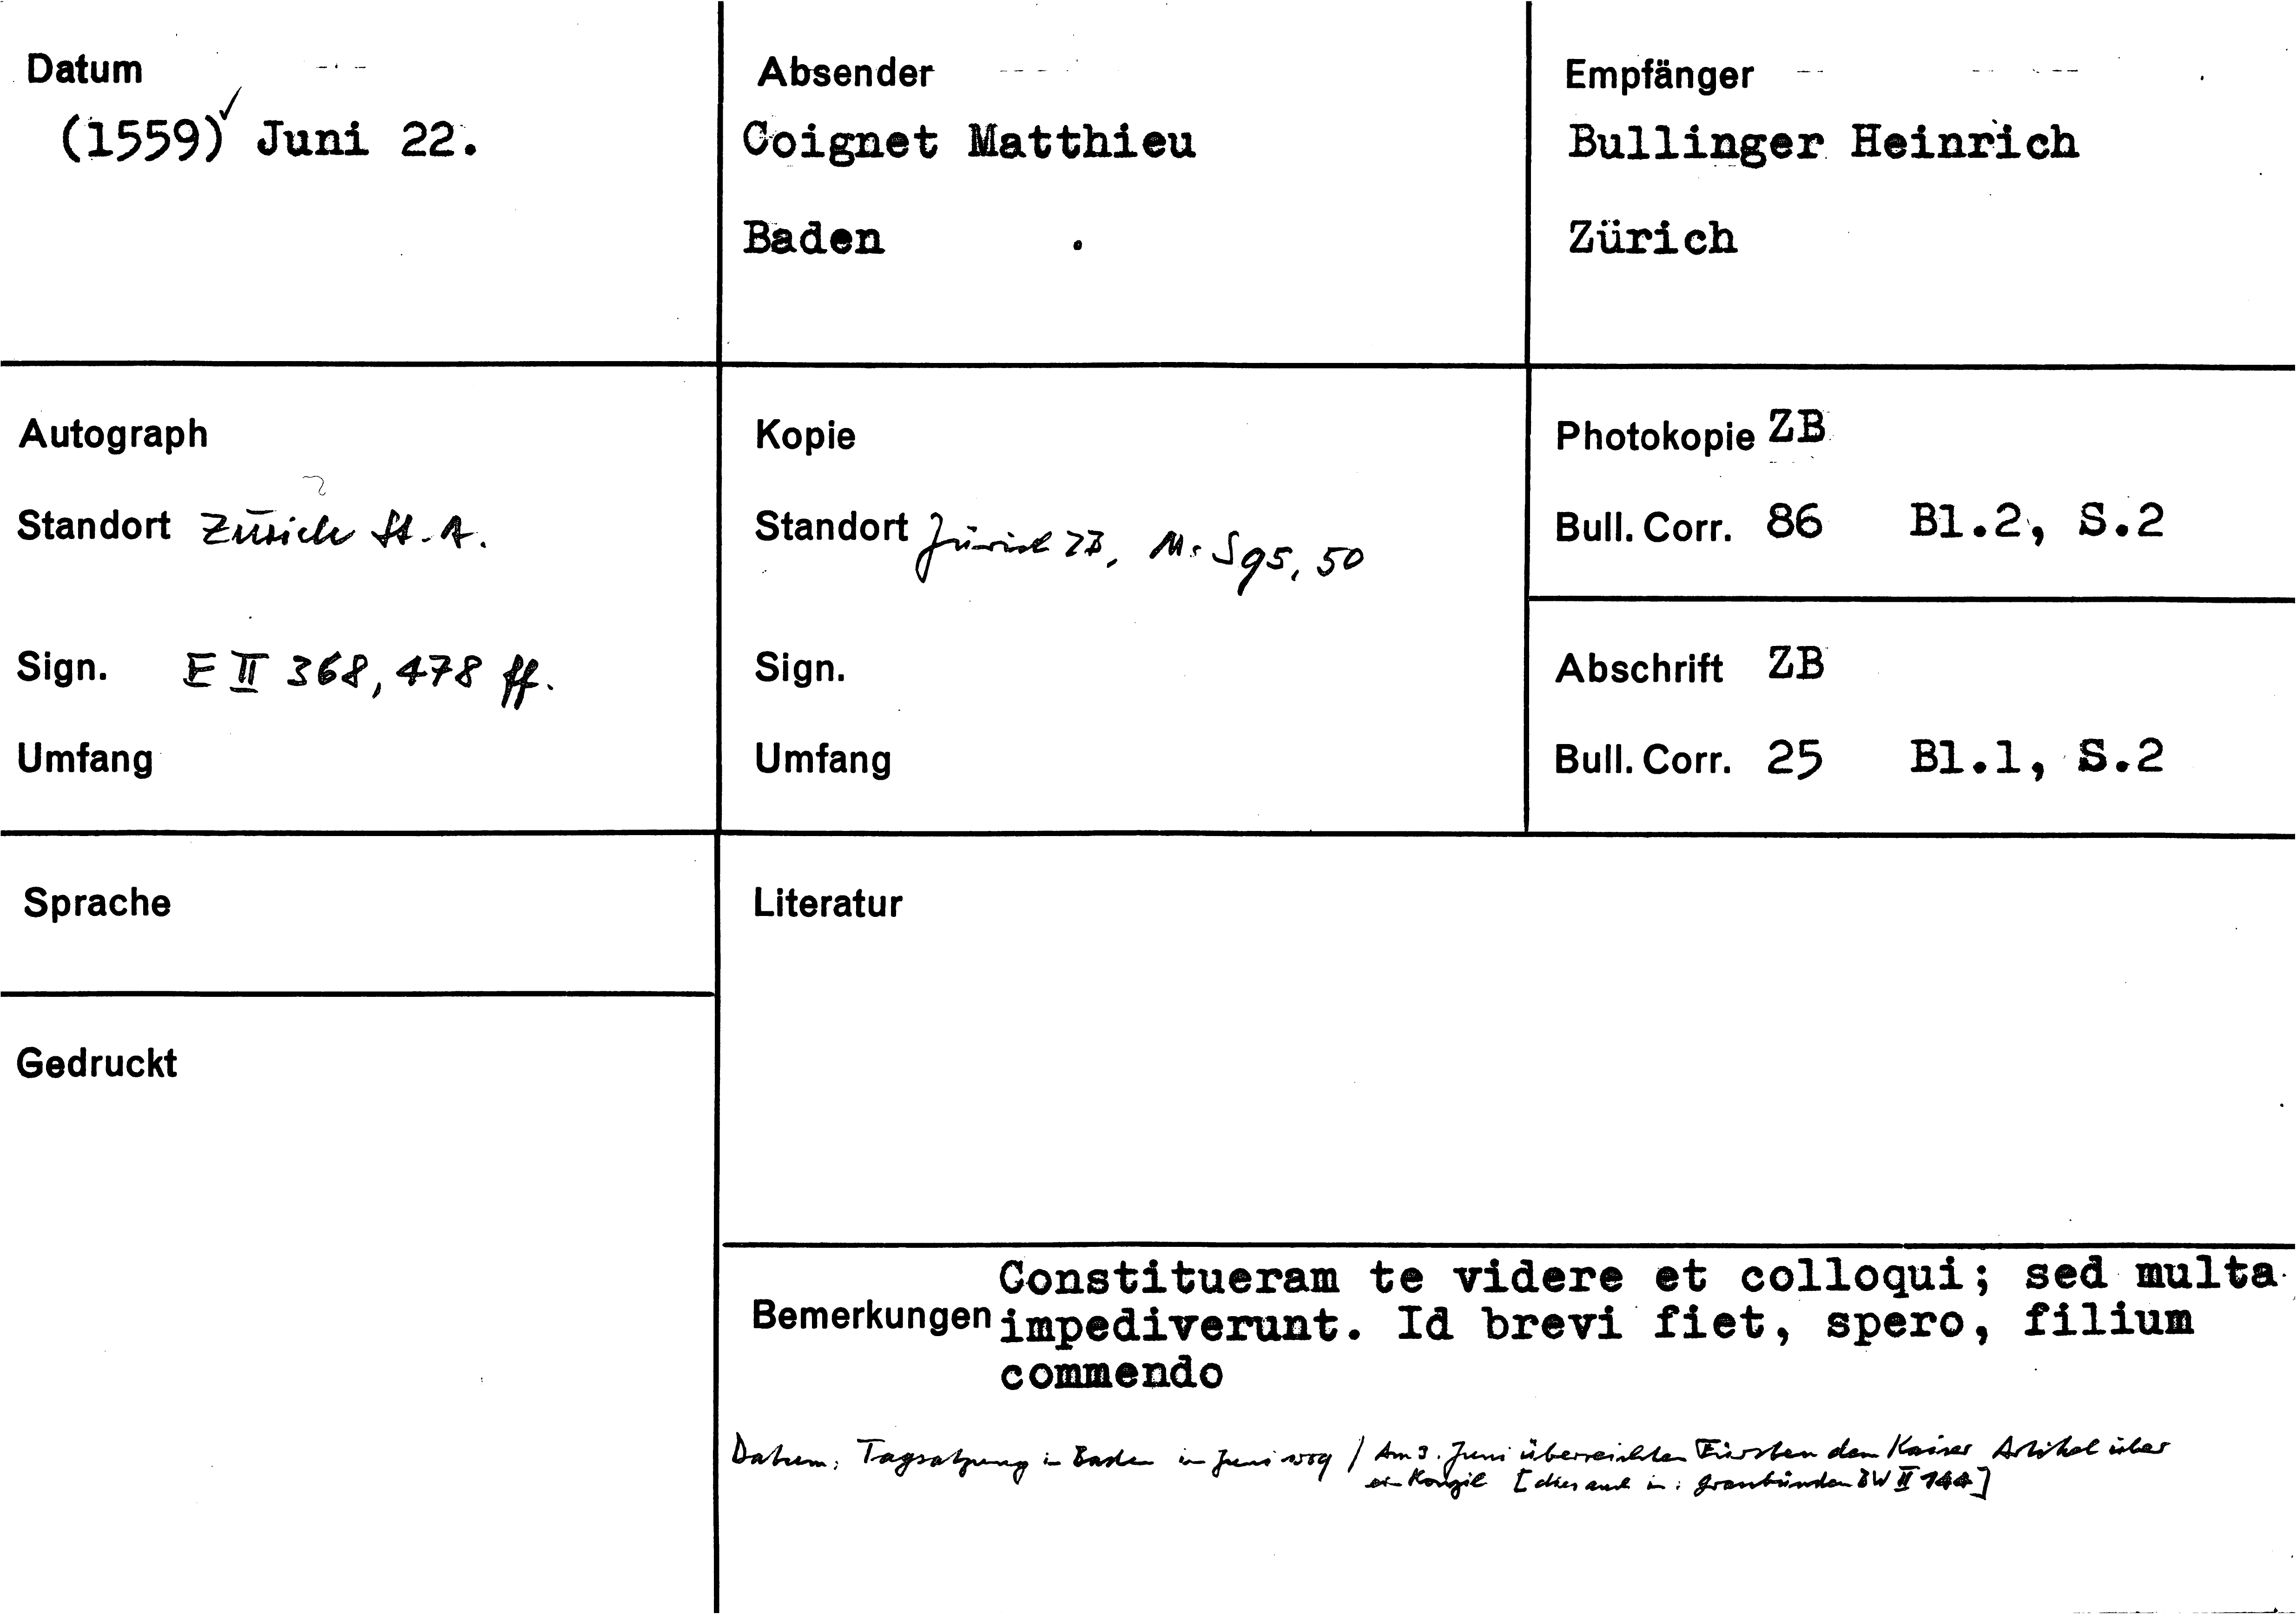 Datum
(1559) Juni 22.
Absender
Coignet Matthieu
Baden
Empfänger
Bullinger Heinrich
Zürich
Autograph
Standort Zürich St. A.
Sign. E II 368, 478 ff.
Umfang
Kopie
Standort Zürich ZB, Ms S 95, 50
Sign.
Umfang
Photokopie ZB
Bull. Corr. 86 Bl.2, S.2
Abschrift ZB
Bull. Corr. 25 Bl.1, S.2
Sprache
Gedruckt
Literatur
Bemerkungen
Constitueram te videre et colloqui; sed multa
impediverunt. Id brevi fiet, spero, filium
commendo
Datum: Tagsatzung in Baden im Juni 1559 / Am 3. Juni überreichten Fürsten dem Kaiser Artikel über
ein Konzil [dies auch in: Graubünden BW II 144]